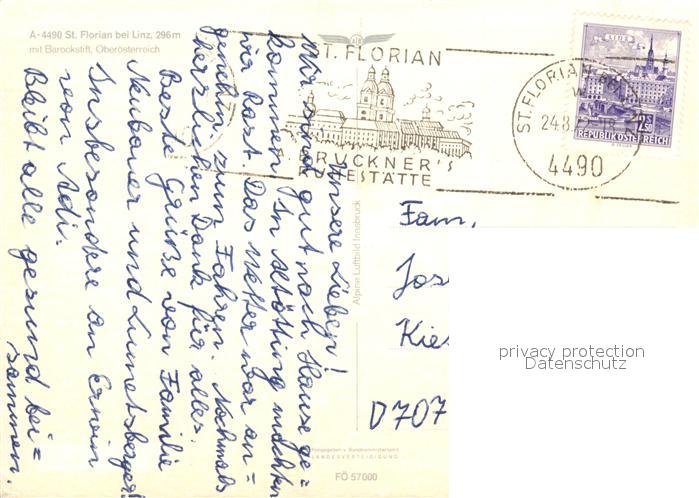 A-4490 St. Florian bei Linz, 296m
mit Barockstift, Oberösterreich
ST. FLORIAN
BRUCKNER'S
RUHESTÄTTE
ST. FLORIAN
24.8.
4490
LINZ
2S
REPUBLIK ÖSTERREICH
Unsere Lieben!
Wir sind gut nach Hause ge=
kommen. In Altötting machten
wir Rast. Das Wetter war an=
genehm zum Fahren. Nochmals
herzlichen Dank für alles.
Beste Grüße von Familie
Neubauer und Lumetsberger!
Insbesondere an Erwin
von Adi.
Bleibt alle gesund bei=
sammen.
Alpine Luftbild Innsbruck
Fam.
Jos
Kies
D 707
privacy protection
Datenschutz
Freigegeben v. Bundesministerium f.
LANDESVERTEIDIGUNG
FÖ 57000